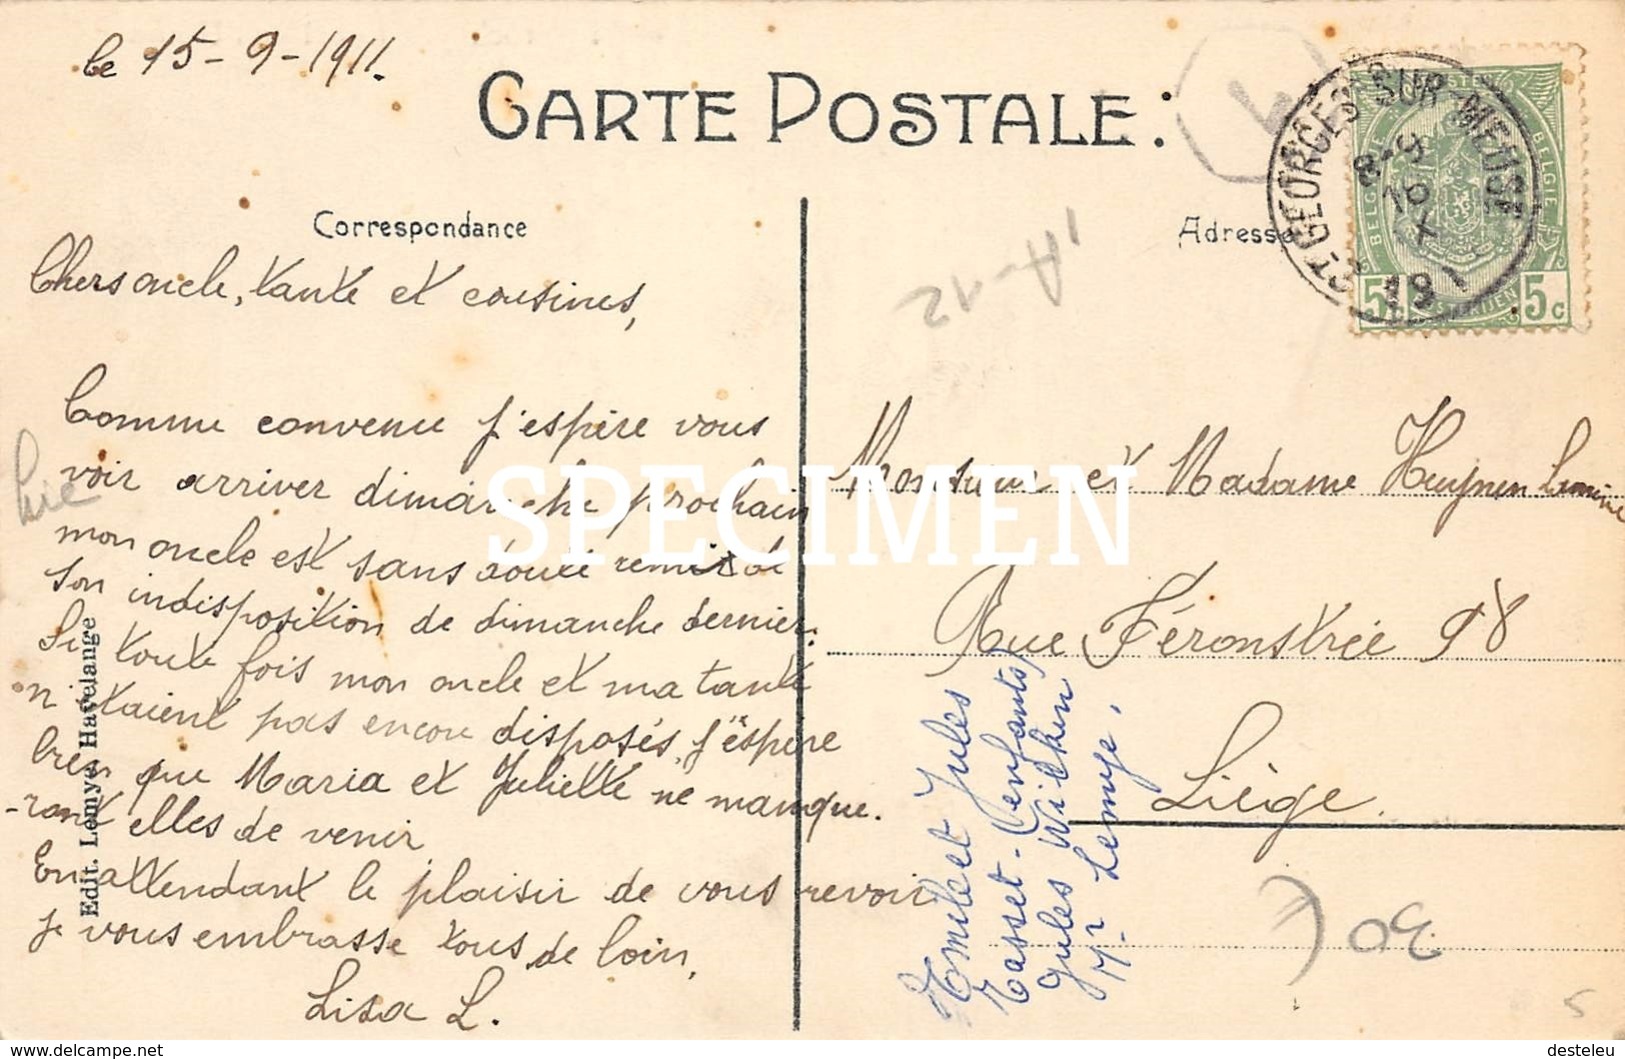 le 15-9-1911.
CARTE POSTALE:
Correspondance
Chers oncle, tante et cousines,
Comme convenu j'espère vous
voir arriver dimanche prochain
mon oncle est sans doute remis de
son indisposition de dimanche dernier.
Si toute fois mon oncle et ma tante
n'étaient pas encore disposés, j'espère
bien que Maria et Juliette ne manque.
-ront elles de venir
En attendant le plaisir de vous revoir
je vous embrasse tous de loin,
Lisa L.
Edit. Lemye Havelange
Adresse
ST GEORGES-SUR-MEUSE
8-9
BELGIE
BELGIQUE
5c
5c
A-12
Monsieur et Madame Heuynen
Rue Féronstrée 98
Liège.
et Jules
Tasset - (enfants)
Jules
Mr Lemye.
30
5
SPECIMEN
delcampe.net
desteleu